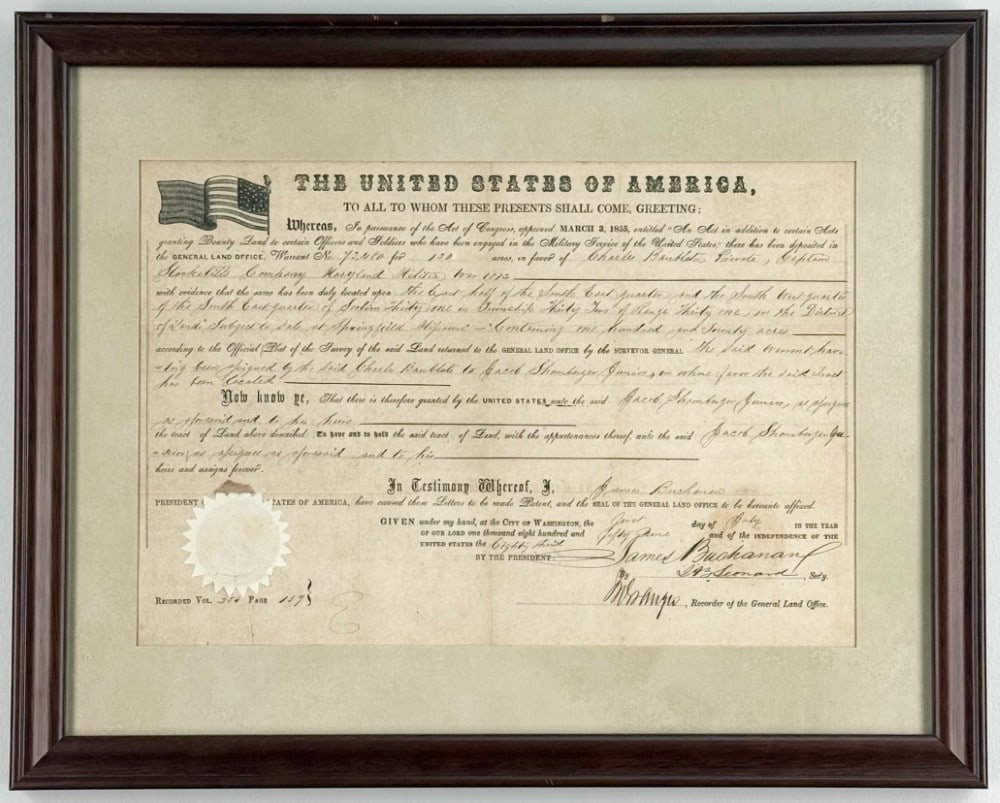 THE UNITED STATES OF AMERICA,
TO ALL TO WHOM THESE PRESENTS SHALL COME, GREETING:
Whereas, In pursuance of the Act of Congress, approved MARCH 3, 1855, entitled "An Act in addition to certain Acts
granting Bounty Land to certain Officers and Soldiers who have been engaged in the Military Service of the United States," there has been deposited in
the GENERAL LAND OFFICE, Warrant No. for 120 acres, in favor of Charles Private, Captain
Company Maryland Militia War 1812
with evidence that the same has been duly located upon the East half of the South East quarter and the South West quarter
of the South East quarter of Section Thirty one in Township Thirty Two of Range Thirty one, in the District
of Lands Subject to sale at Springfield Missouri Containing one hundred and Twenty acres
according to the Official Plat of the Survey of the said Land returned to the GENERAL LAND OFFICE by the SURVEYOR GENERAL the said Warrant hav-
-ing been assigned by the said Charles to Jacob Junior, in whose favor the said Tract
has been located
Now know ye, That there is therefore granted by the UNITED STATES unto the said Jacob Junior, as assignee
as aforesaid and to his heirs
the tract of Land above described: To have and to hold the said tract, of Land, with the appurtenances thereof, unto the said Jacob Ju-
-nior, as assignee as aforesaid and to his
heirs and assigns forever.
In Testimony Whereof, I, James Buchanan
PRESIDENT STATES OF AMERICA, have caused these Letters to be made Patent, and the SEAL OF THE GENERAL LAND OFFICE to be hereunto affixed.
GIVEN under my hand, at the CITY OF WASHINGTON, the first day of July IN THE YEAR
OF OUR LORD one thousand eight hundred and fifty nine and of the INDEPENDENCE OF THE
UNITED STATES the Eighty third
BY THE PRESIDENT: James Buchanan
By Leonard, Sec'y.
RECORDED VOL. PAGE 157
, Recorder of the General Land Office.
E